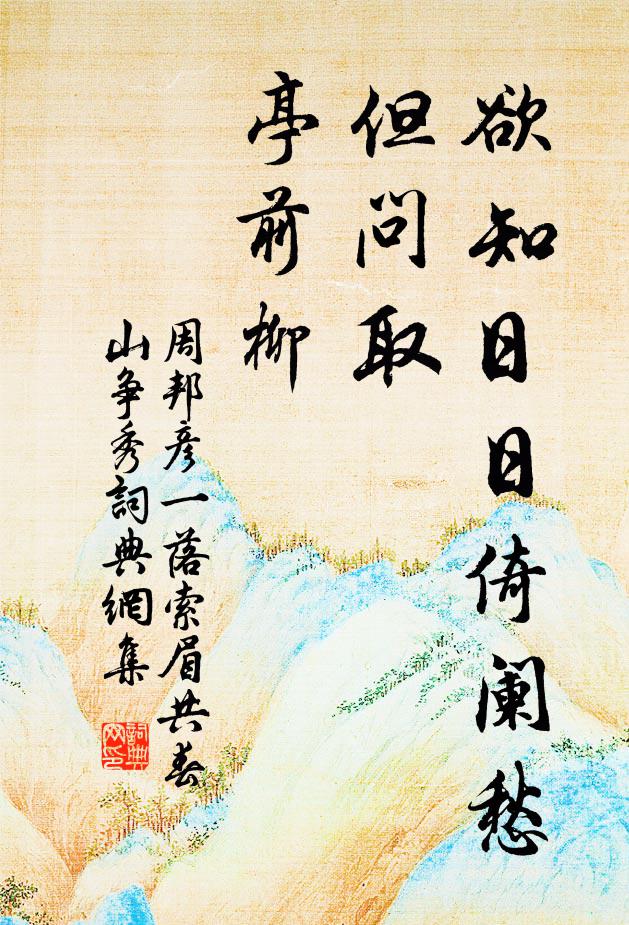 欲知日日倚阑愁
但问取
亭前柳
周邦彦一落索眉共春
山争秀詞典網集
詞典
网印